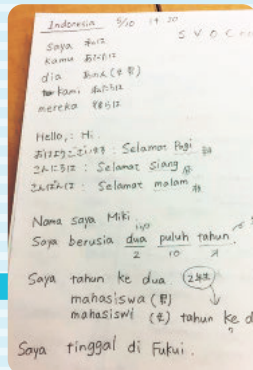 Indonesia 5/10 19:20
saya わたし
kamu あなた
dia あの人(女男)
kami わたしたち
mereka 彼ら
Hello,: Hi.
おはようございます : Selamat Pagi
こんにちは : Selamat siang
こんばんは : Selamat malam
Nama saya Miki.
Saya berusia dua puluh tahun.
2 10 才
Saya tahun ke dua. (2年生)
mahasiswa (男)
mahasiswi (女) tahun ke d
Saya tinggal di Fukui.